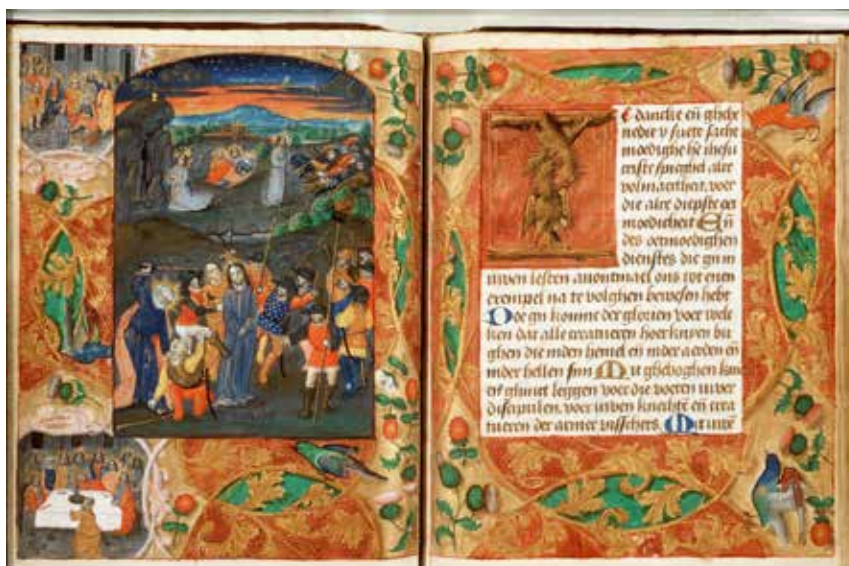 Ic dancke eñ ghebe
nedie v sacte sache
moedighe he ihesu
enste spieghel alre
volmaectheit, voer
die alre diepste oet
moedicheit Eñ
des oetmoedighen
dienstes die gij in
uwen lesten auontmael ons tot enen
exempel na te volghen bewesen hebt
Doe gij coninc der glorien voer wele
ken dat alle creatueren hoer knien bu
ghen die inden hemel en inder aerden eñ
inder hellen sijn Mit gheboghen knie
en ghinct legghen voer die voeten uwer
discipulen, voer uwen knechtē eñ crea
tueren der armer visschers. Mit uwe